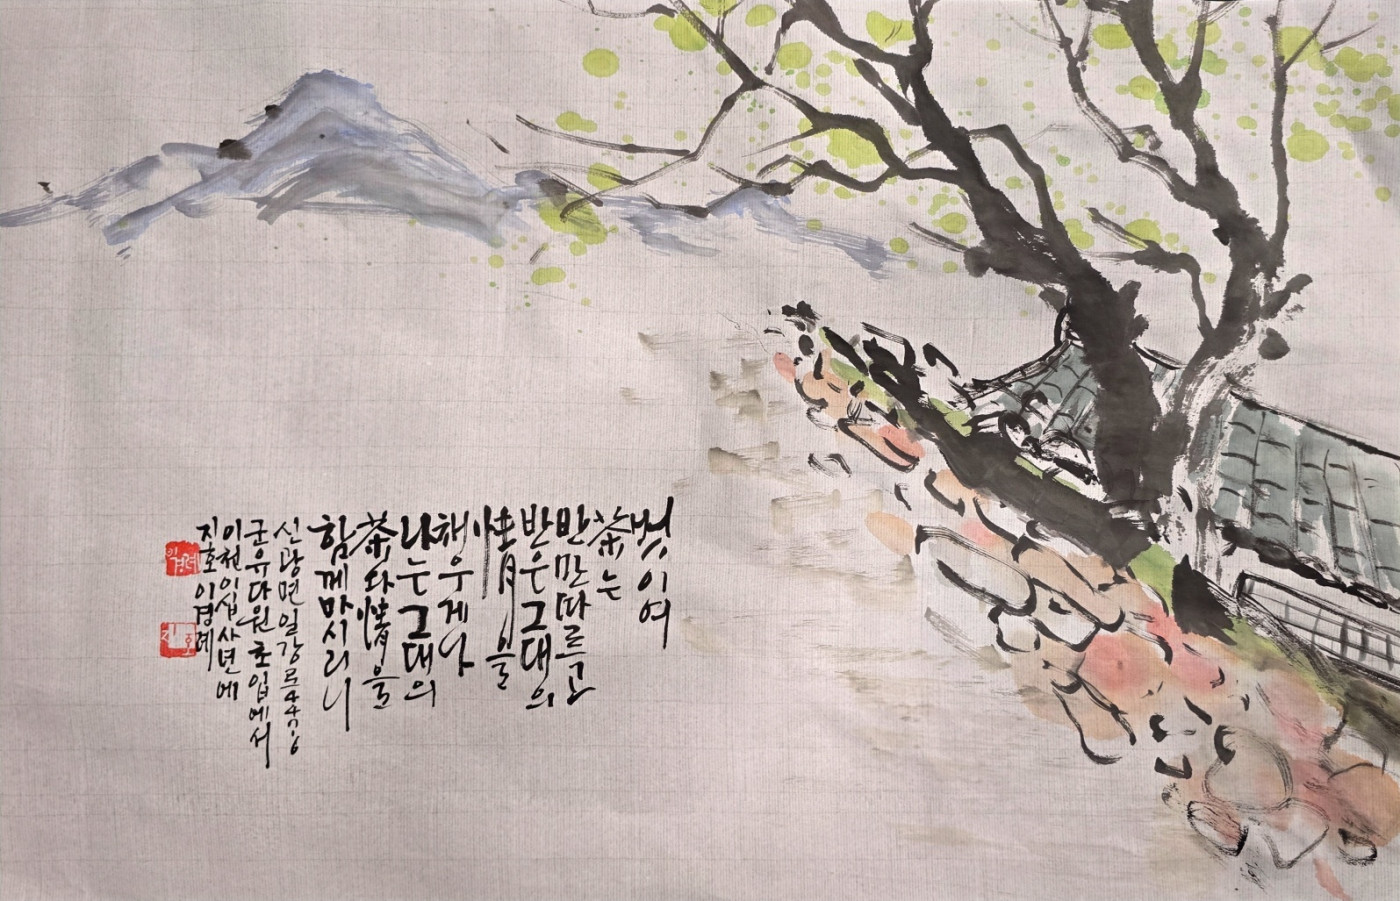 벗이여
茶는
반만 따르고
반은 그대의
情을
채우게나
나는 그대의
茶와 情을
함께 마시리니
신광면 일강로
군유다원 초입에서
이천이십사년에
지호 이경례
이경례
지호